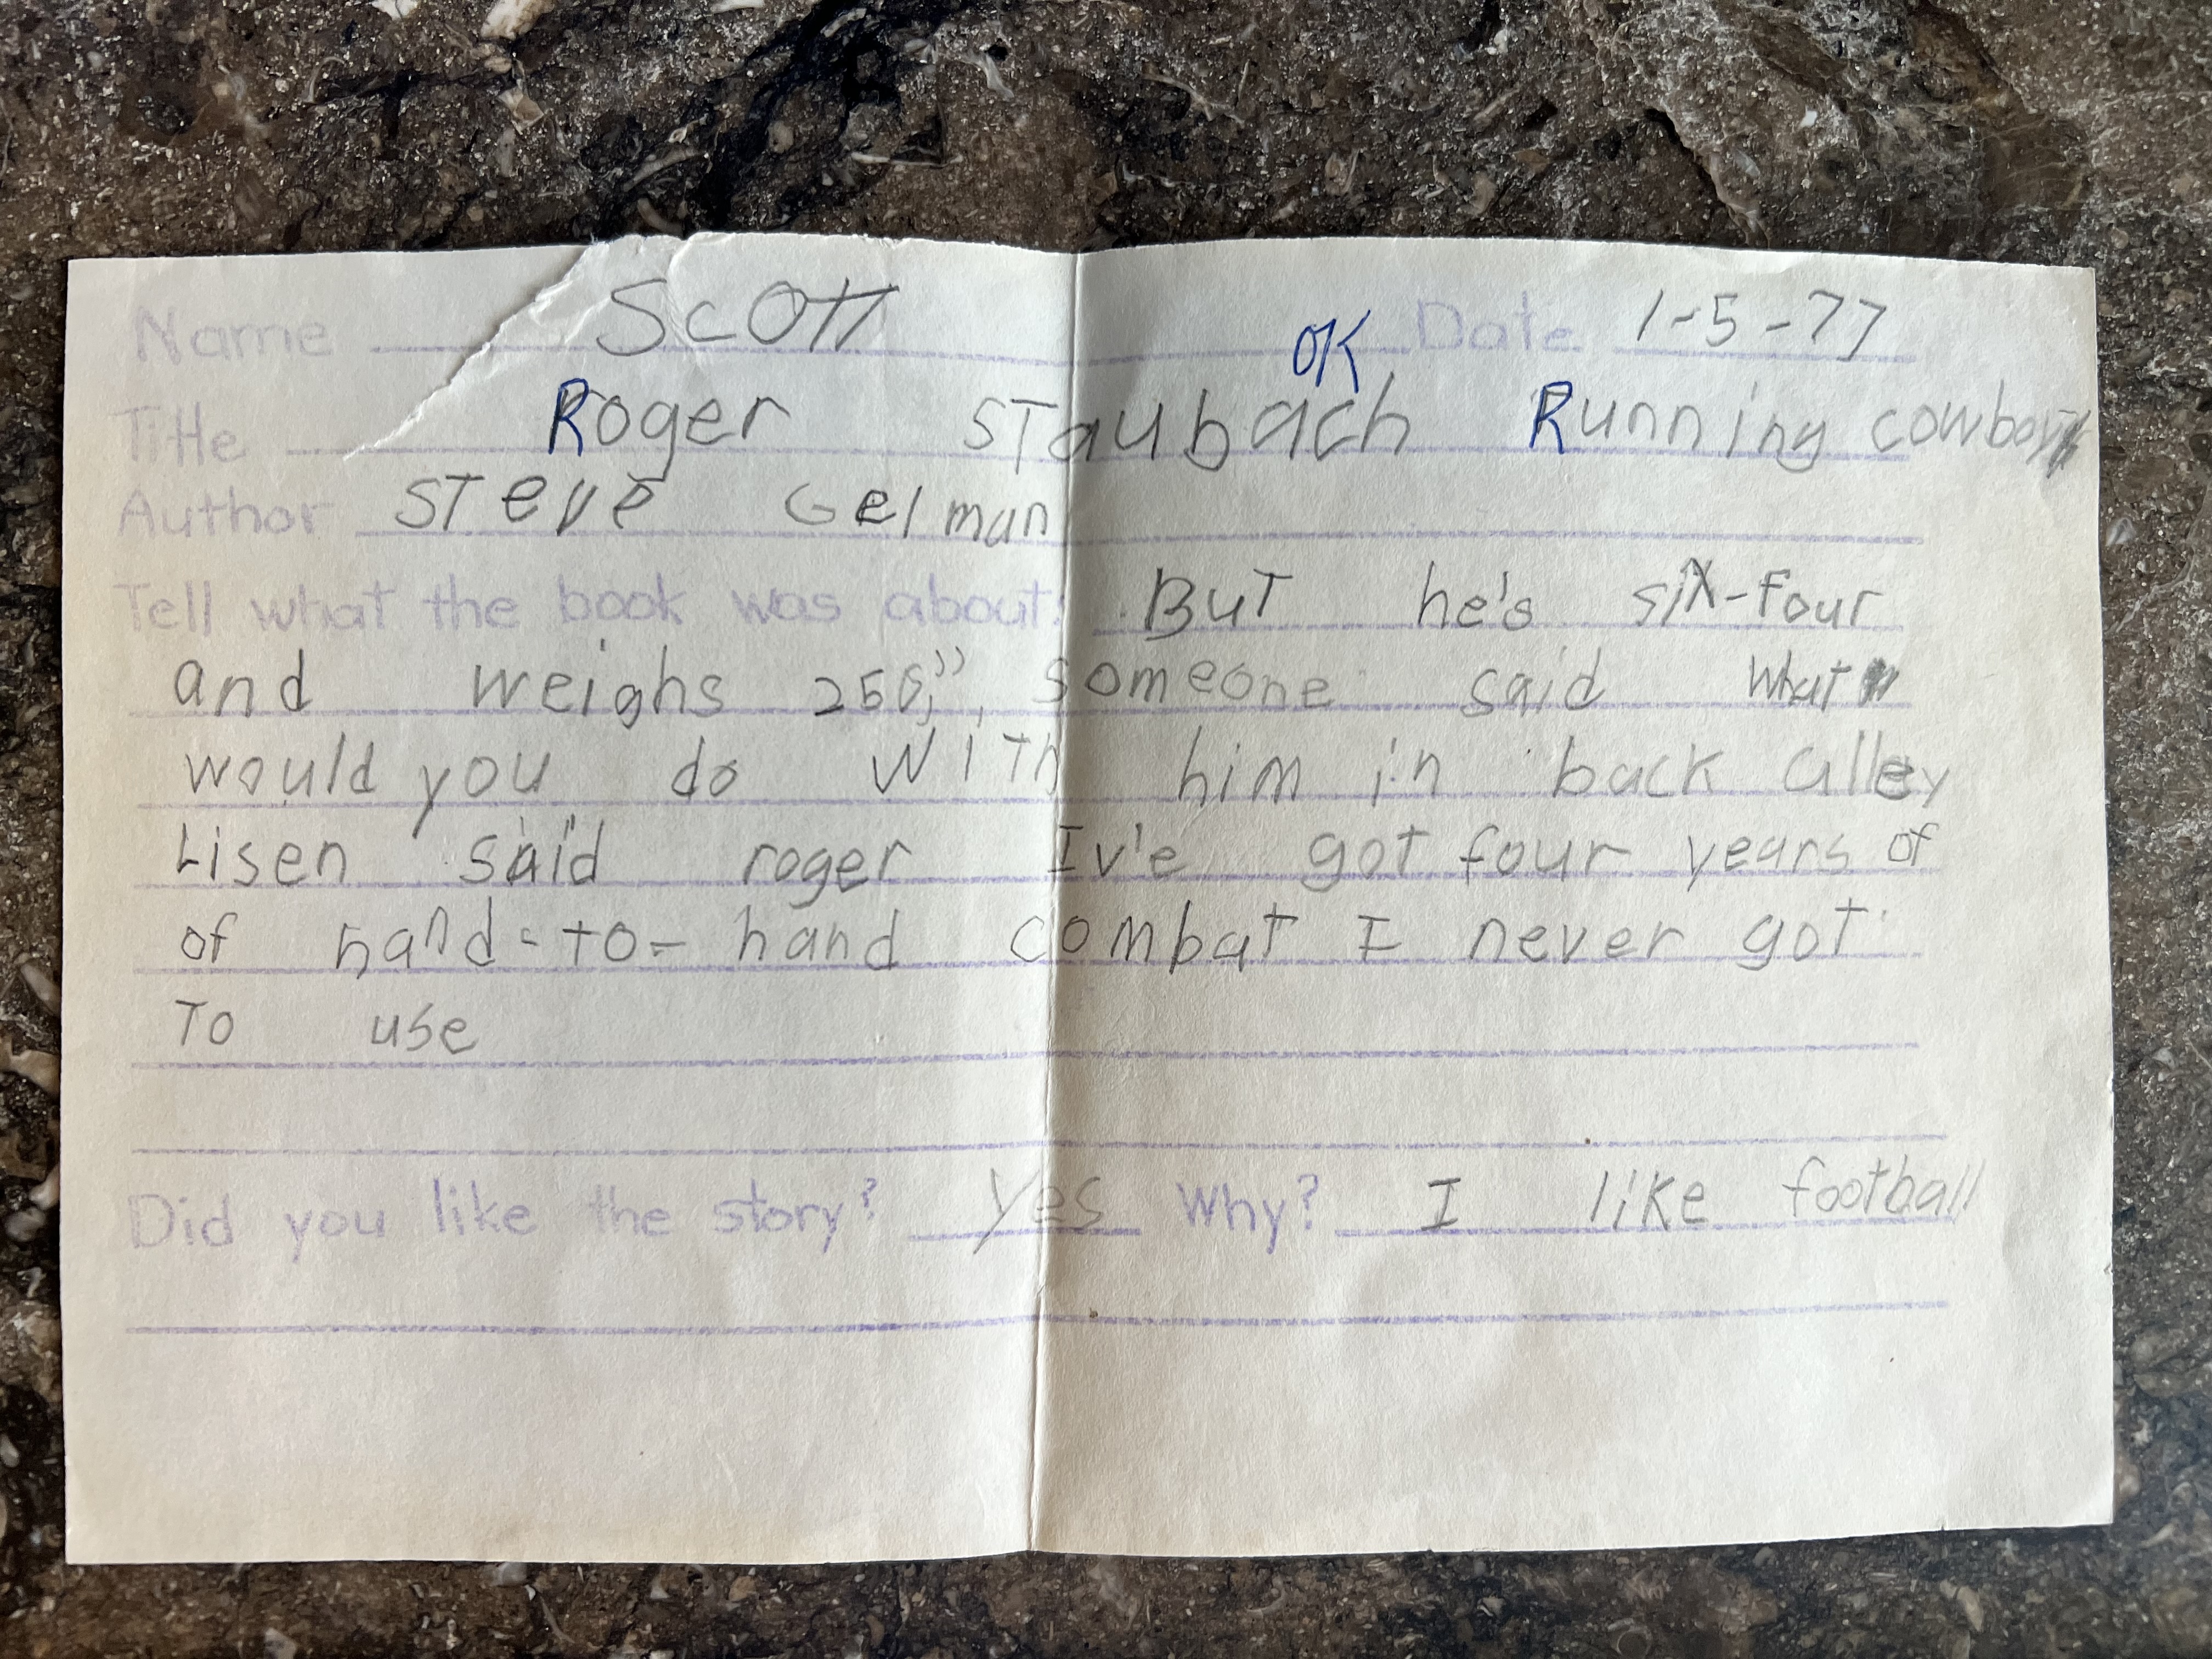 Name Scott Date 1-5-77
OK
Title Roger Staubach Running cowboy
Author Steve Gelman
Tell what the book was about: But he's six-four
and weighs 250," someone said what
would you do with him in back alley
Lisen said roger Iv'e got four years of
of hand-to-hand combat I never got
To use
Did you like the story? yes Why? I like football